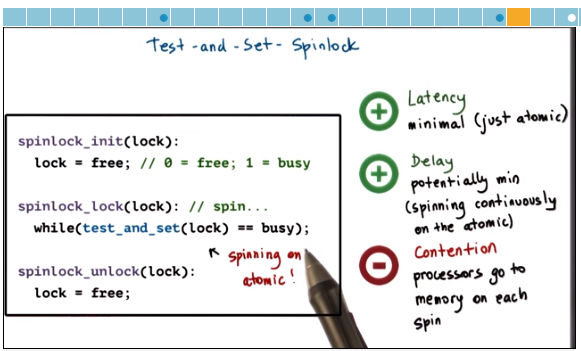 Test-and-Set-Spinlock
spinlock_init(lock):
lock = free; // 0 = free; 1 = busy
spinlock_lock(lock): // spin...
while(test_and_set(lock) == busy);
spinning on
atomic!
spinlock_unlock(lock):
lock = free;
Latency
minimal (just atomic)
Delay
potentially min
(spinning continuously
on the atomic)
Contention
processors go to
memory on each
spin